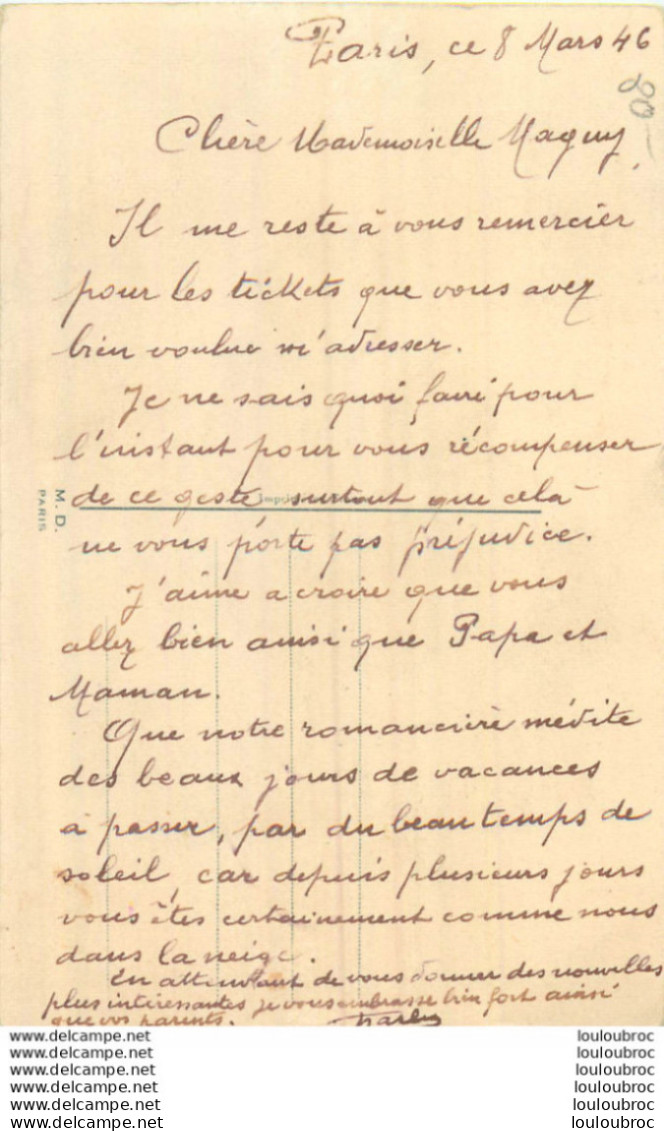 Paris, ce 8 Mars 46
20
Chère Mademoiselle Maguy,
Il me reste à vous remercier
pour les tickets que vous avez
bien voulue m'adresser.
Je ne sais quoi faire pour
l'instant pour vous récompenser
de ce geste surtout que celà
ne vous porte pas préjudice.
J'aime a croire que vous
allez bien ainsi que Papa et
Maman.
Que notre romancière médite
des beaux jours de vacances
à passer, par du beau temps de
soleil, car depuis plusieurs jours
vous êtes certainement comme nous
dans la neige.
En attendant de vous donner des nouvelles
plus intéressantes je vous embrasse bien fort ainsi
que vos parents.
M. D.
PARIS
www.delcampe.net louloubroc
www.delcampe.net louloubroc
www.delcampe.net louloubroc
www.delcampe.net louloubroc
www.delcampe.net louloubroc
www.delcampe.net louloubroc